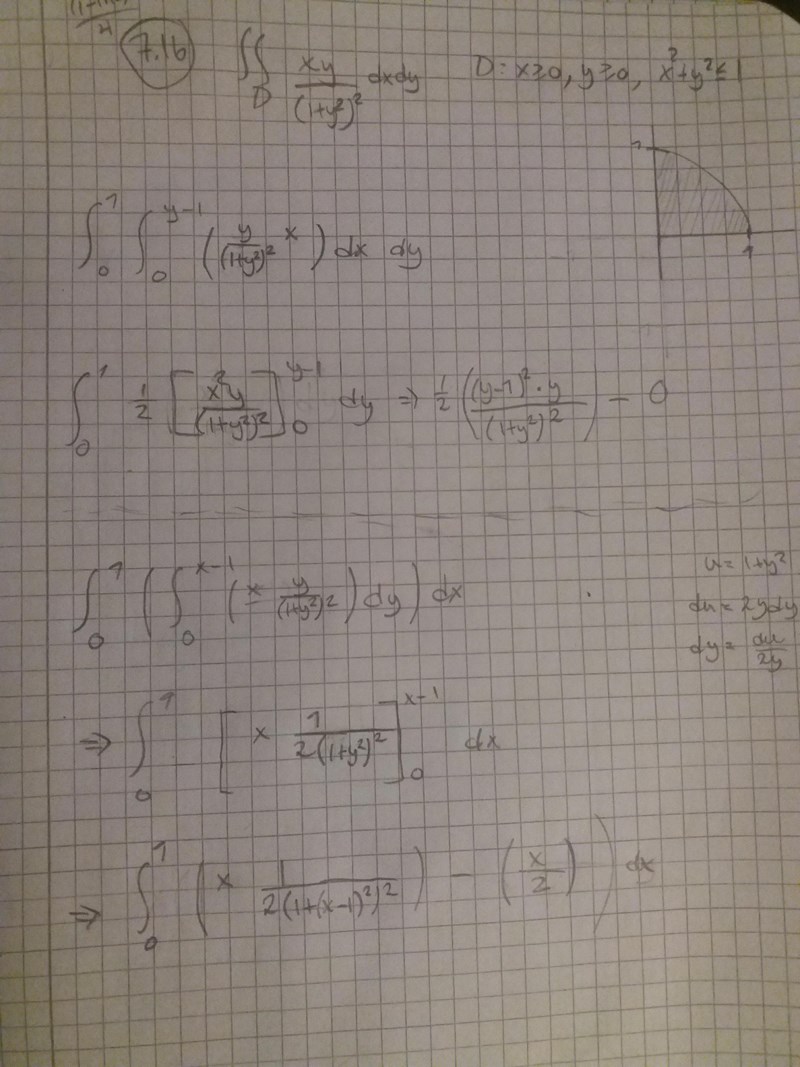 7.16 ∬_D xy/(1+y²)² dxdy D: x≥0, y≥0, x²+y²≤1
1
1
∫_0^1 ∫_0^{y-1} (y/(1+y²)² x) dx dy
∫_0^1 1/2 [x²y/(1+y²)²]_0^{y-1} dy ⇒ 1/2 ((y-1)²·y/(1+y²)²) - 0
∫_0^1 (∫_0^{x-1} (x y/(1+y²)²) dy) dx
u = 1+y²
du = 2ydy
dy = du/2y
⇒ ∫_0^1 [x 1/2(1+y²)²]_0^{x-1} dx
⇒ ∫_0^1 (x 1/2(1+(x-1)²)²) - (x/2)) dx